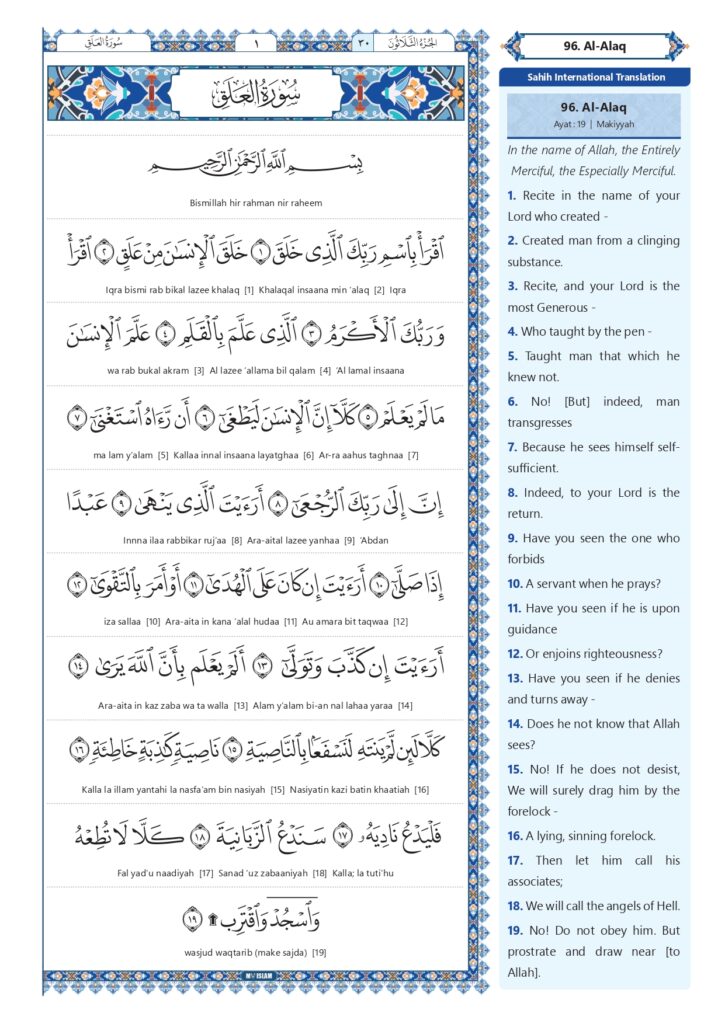 سُورَةُ العَلَقِ
١
٣٠
الجُزْءُ الثَّلَاثُونَ
سُورَةُ العَلَقِ
بِسْمِ ٱللَّهِ ٱلرَّحْمَٰنِ ٱلرَّحِيمِ
Bismillah hir rahman nir raheem
ٱقْرَأْ بِٱسْمِ رَبِّكَ ٱلَّذِى خَلَقَ ١ خَلَقَ ٱلْإِنسَٰنَ مِنْ عَلَقٍ ٢ ٱقْرَأْ
Iqra bismi rab bikal lazee khalaq [1] Khalaqal insaana min 'alaq [2] Iqra
وَرَبُّكَ ٱلْأَكْرَمُ ٣ ٱلَّذِى عَلَّمَ بِٱلْقَلَمِ ٤ عَلَّمَ ٱلْإِنسَٰنَ
wa rab bukal akram [3] Al lazee 'allama bil qalam [4] 'Al lamal insaana
مَا لَمْ يَعْلَمْ ٥ كَلَّآ إِنَّ ٱلْإِنسَٰنَ لَيَطْغَىٰٓ ٦ أَن رَّءَاهُ ٱسْتَغْنَىٰٓ ٧
ma lam y'alam [5] Kallaa innal insaana layatghaa [6] Ar-ra aahus taghnaa [7]
إِنَّ إِلَىٰ رَبِّكَ ٱلرُّجْعَىٰٓ ٨ أَرَءَيْتَ ٱلَّذِى يَنْهَىٰ ٩ عَبْدًا
Innna ilaa rabbikar ruj'aa [8] Ara-aital lazee yanhaa [9] 'Abdan
إِذَا صَلَّىٰٓ ١٠ أَرَءَيْتَ إِن كَانَ عَلَى ٱلْهُدَىٰٓ ١١ أَوْ أَمَرَ بِٱلتَّقْوَىٰٓ ١٢
iza sallaa [10] Ara-aita in kana 'alal hudaa [11] Au amara bit taqwaa [12]
أَرَءَيْتَ إِن كَذَّبَ وَتَوَلَّىٰٓ ١٣ أَلَمْ يَعْلَم بِأَنَّ ٱللَّهَ يَرَىٰ ١٤
Ara-aita in kaz zaba wa ta walla [13] Alam y'alam bi-an nal lahaa yaraa [14]
كَلَّا لَئِن لَّمْ يَنتَهِ لَنَسْفَعًۢا بِٱلنَّاصِيَةِ ١٥ نَاصِيَةٍ كَٰذِبَةٍ خَاطِئَةٍ ١٦
Kalla la illam yantahi la nasfa'am bin nasiyah [15] Nasiyatin kazi batin khaatiah [16]
فَلْيَدْعُ نَادِيَهُۥ ١٧ سَنَدْعُ ٱلزَّبَانِيَةَ ١٨ كَلَّا لَا تُطِعْهُ
Fal yad'u naadiyah [17] Sanad 'uz zabaaniyah [18] Kalla; la tuti'hu
وَٱسْجُدْ وَٱقْتَرِب ۩ ١٩
wasjud waqtarib (make sajda) [19]
MY ISLAM
96. Al-Alaq
Sahih International Translation
96. Al-Alaq
Ayat : 19 | Makiyyah
In the name of Allah, the Entirely
Merciful, the Especially Merciful.
1. Recite in the name of your
Lord who created -
2. Created man from a clinging
substance.
3. Recite, and your Lord is the
most Generous -
4. Who taught by the pen -
5. Taught man that which he
knew not.
6. No! [But] indeed, man
transgresses
7. Because he sees himself self-
sufficient.
8. Indeed, to your Lord is the
return.
9. Have you seen the one who
forbids
10. A servant when he prays?
11. Have you seen if he is upon
guidance
12. Or enjoins righteousness?
13. Have you seen if he denies
and turns away -
14. Does he not know that Allah
sees?
15. No! If he does not desist,
We will surely drag him by the
forelock -
16. A lying, sinning forelock.
17. Then let him call his
associates;
18. We will call the angels of Hell.
19. No! Do not obey him. But
prostrate and draw near [to
Allah].